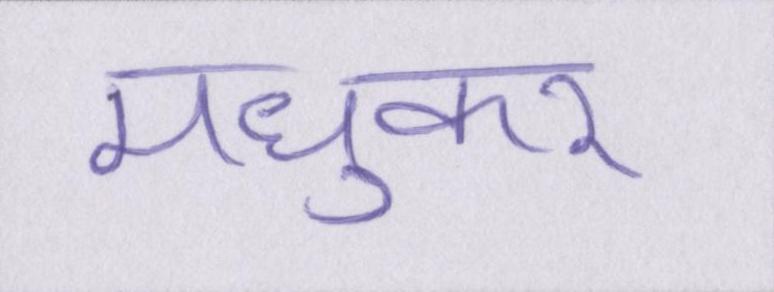 मधुकर